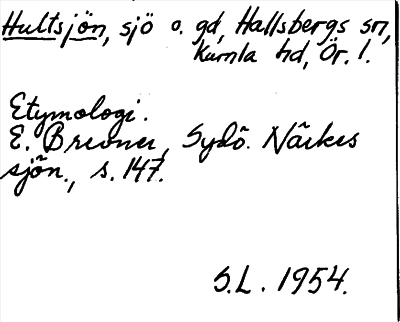 Hultsjön, sjö o. gd, Hallsbergs sn,
Kumla hd, Ör. l.
Etymologi.
E. Brevner, Sydö. Närkes
sjön., s. 147.
S.L. 1954.